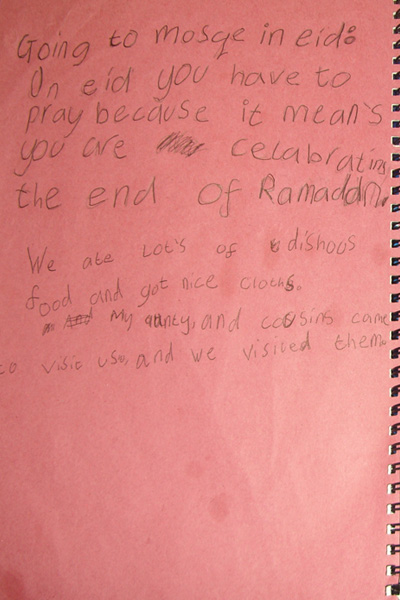 Going to mosqe in eid:
On eid you have to
pray because it mean's
you are celabrating
the end of Ramadan.
We ate Lot's of dishous
food and got nice cloths.
My aunty, and cousins came
to visit us, and we visited them.